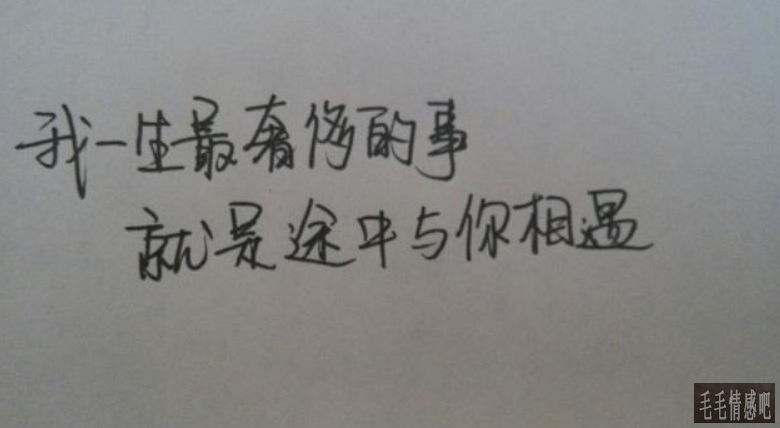 我一生最奢侈的事
就是途中与你相遇
毛毛情感吧